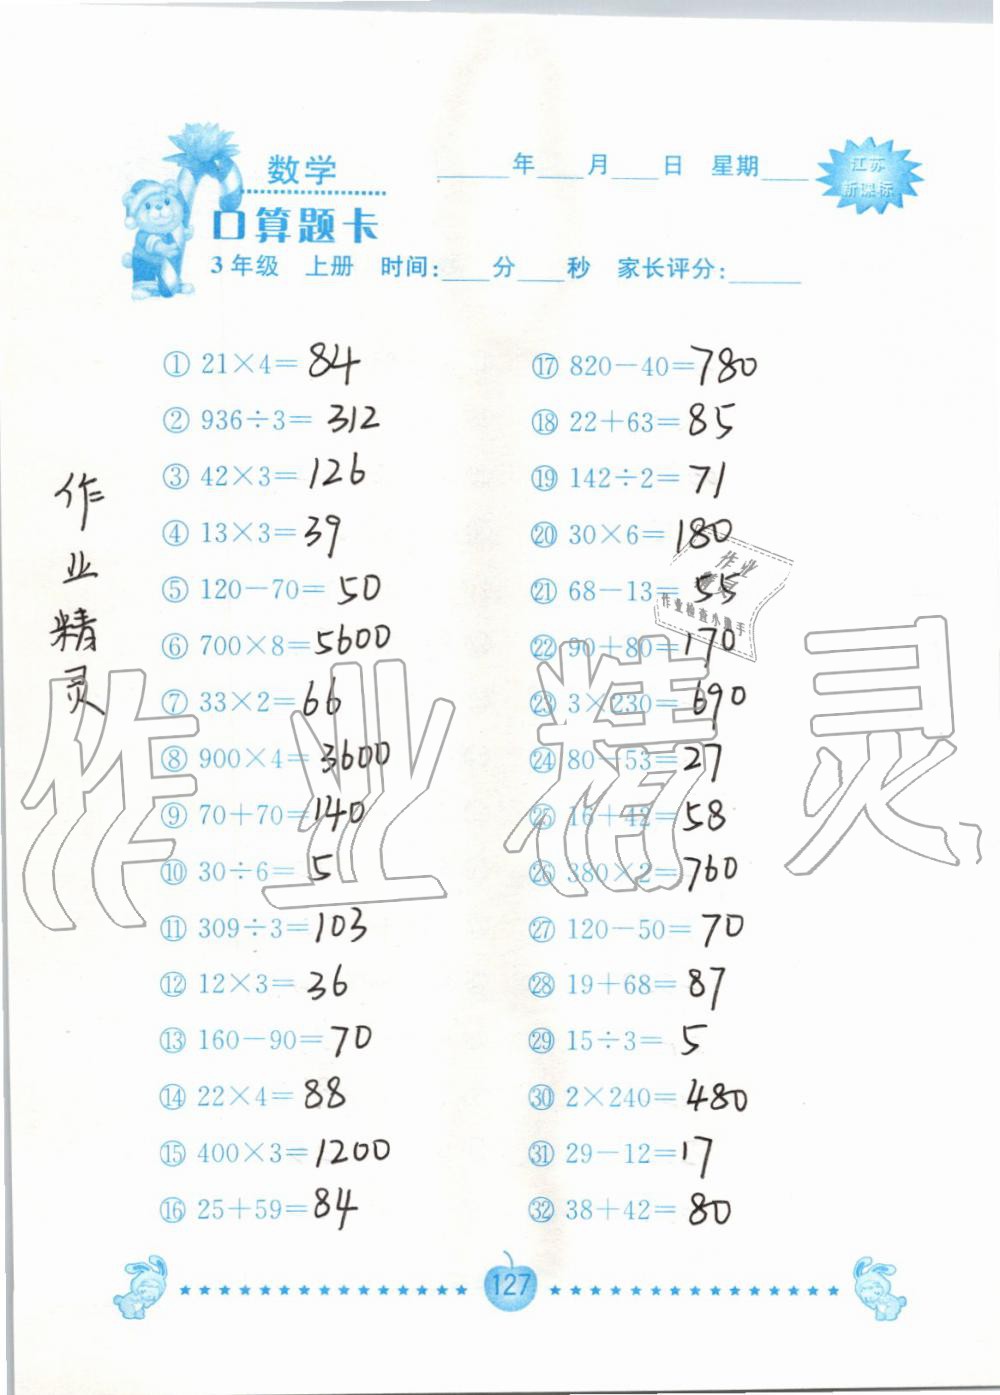 数学
____年____月____日 星期____
江苏
新课标
口算题卡
3年级 上册 时间:____分____秒 家长评分:____
① 21×4=84
② 936÷3=312
③ 42×3=126
④ 13×3=39
⑤ 120-70=50
⑥ 700×8=5600
⑦ 33×2=66
⑧ 900×4=3600
⑨ 70+70=140
⑩ 30÷6=5
⑪ 309÷3=103
⑫ 12×3=36
⑬ 160-90=70
⑭ 22×4=88
⑮ 400×3=1200
⑯ 25+59=84
⑰ 820-40=780
⑱ 22+63=85
⑲ 142÷2=71
⑳ 30×6=180
㉑ 68-13=55
㉒ 90+80=170
㉓ 3×230=690
㉔ 80-53=27
㉕ 16+42=58
㉖ 380×2=760
㉗ 120-50=70
㉘ 19+68=87
㉙ 15÷3=5
㉚ 2×240=480
㉛ 29-12=17
㉜ 38+42=80
作业精灵
作业
作业检查小助手
作业精灵
127